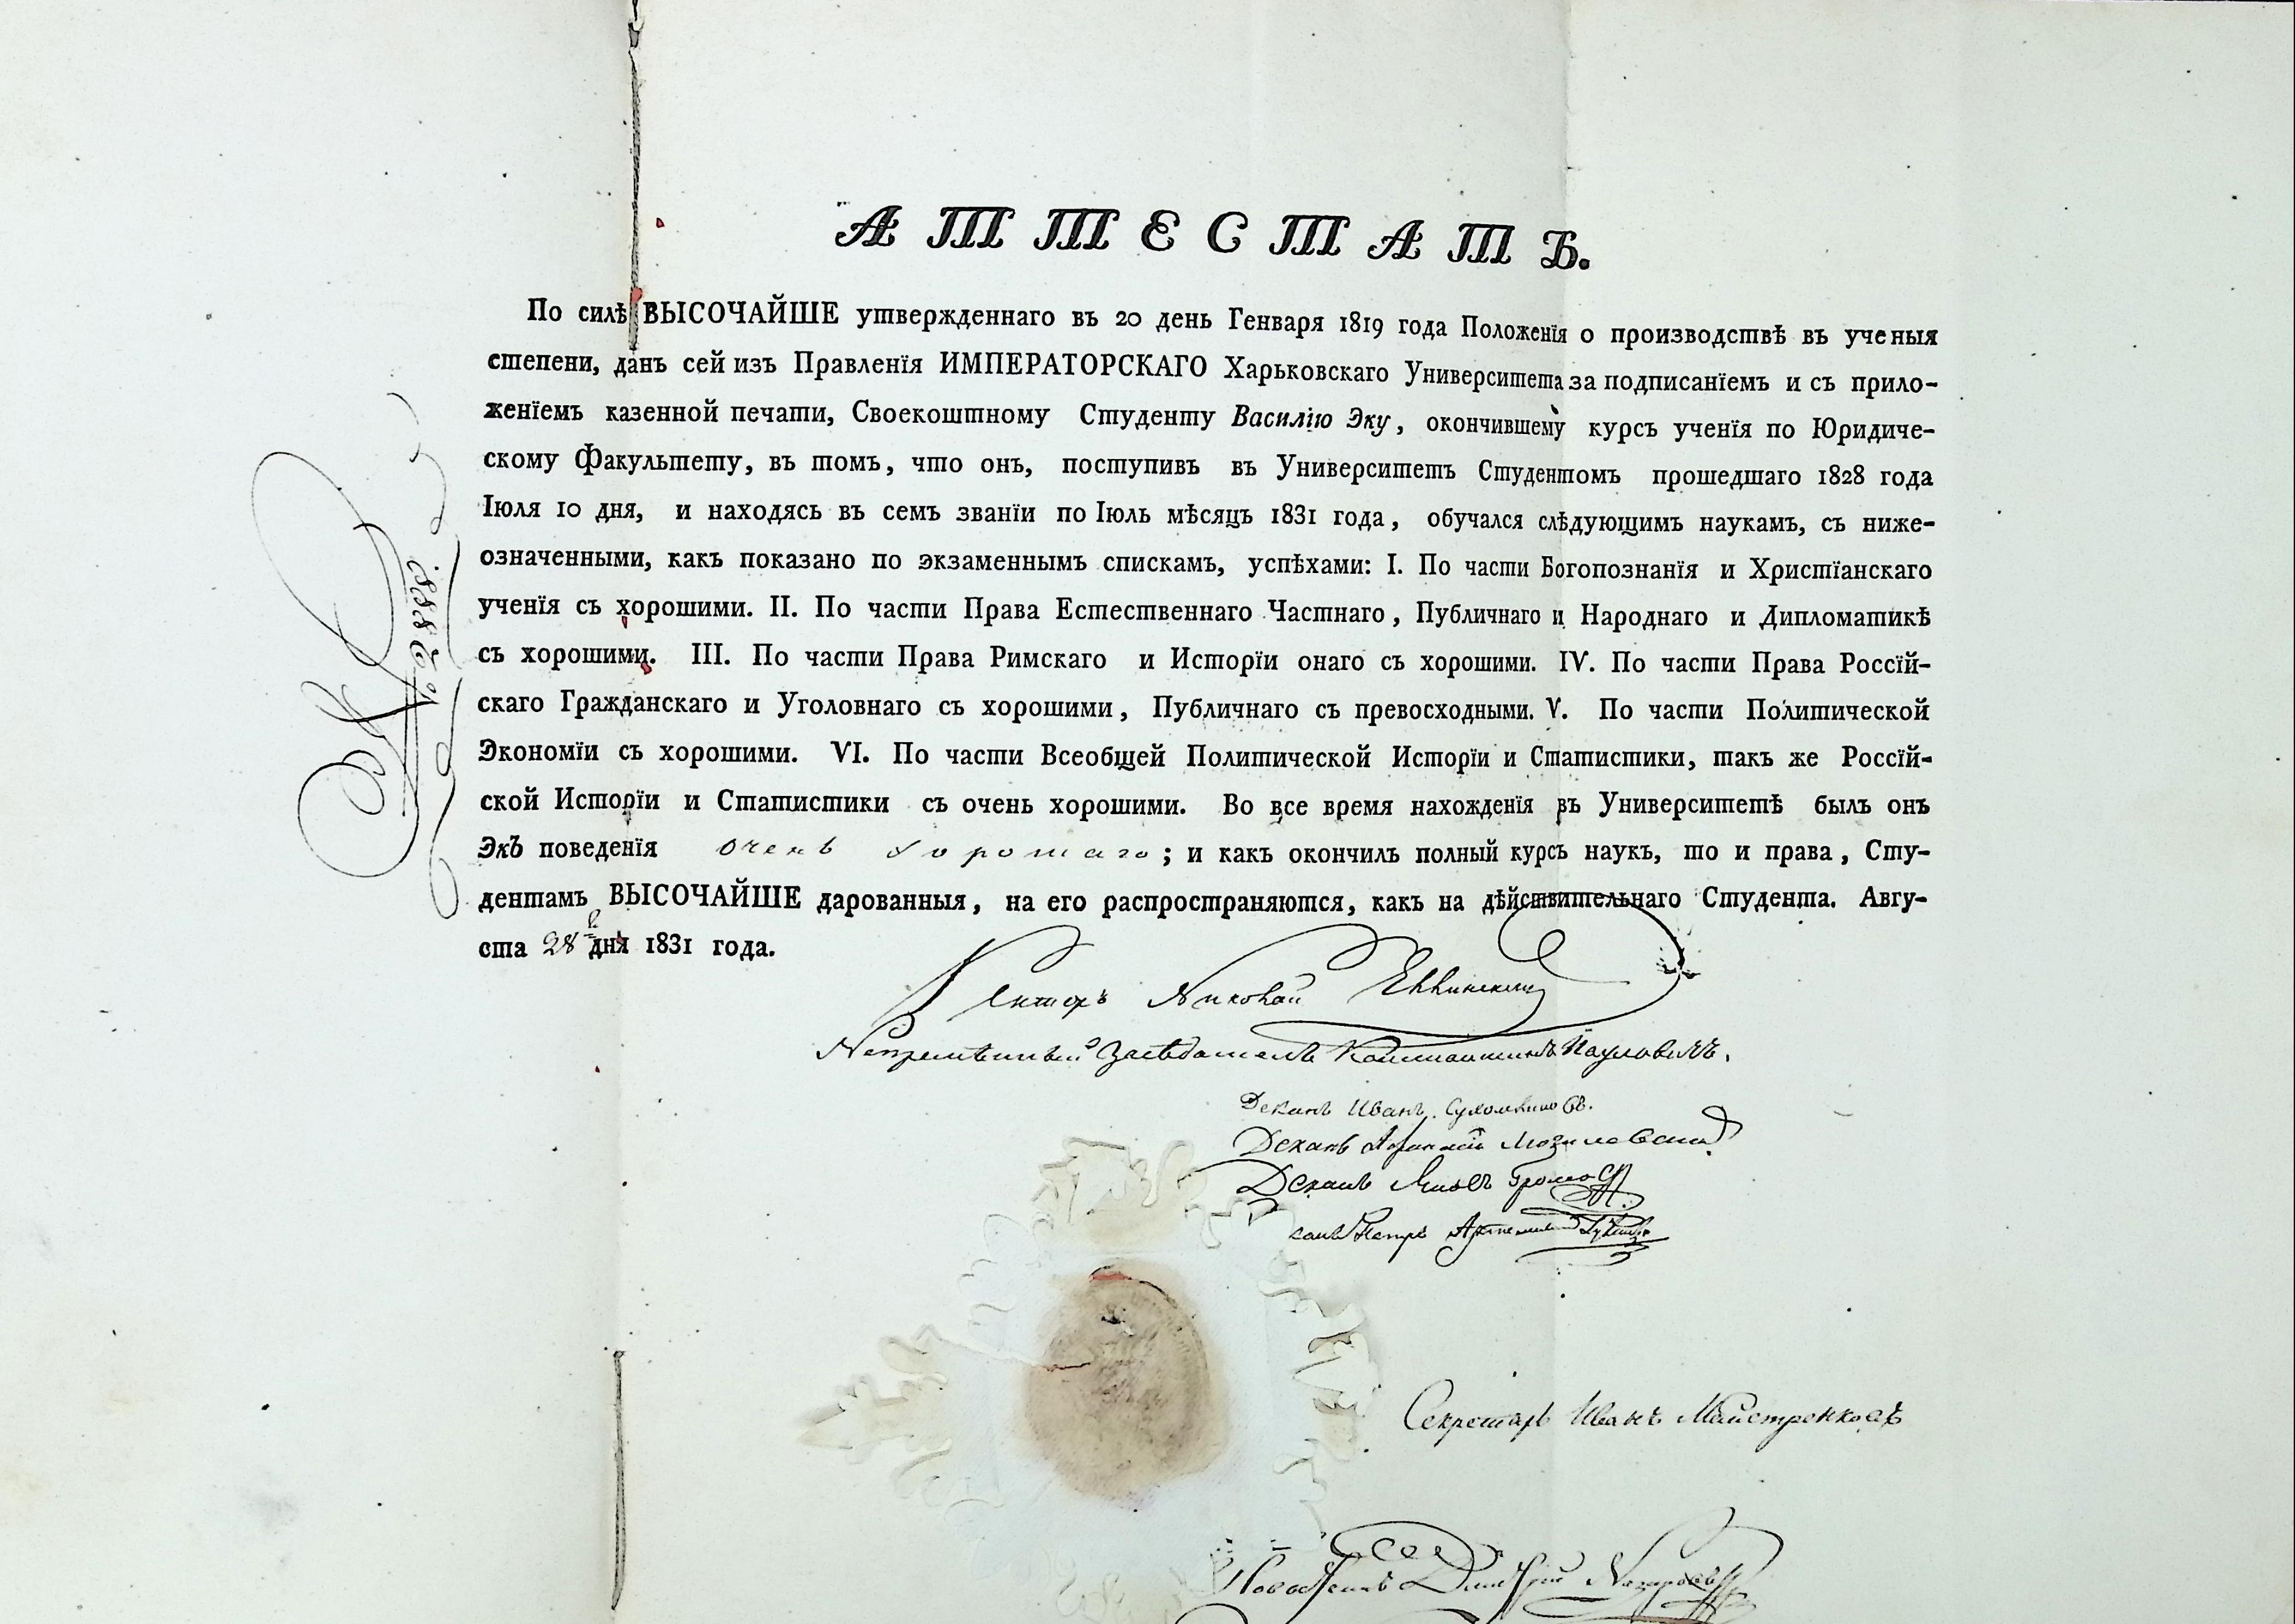 АТТЕСТАТЪ.
По силѣ ВЫСОЧАЙШЕ утвержденнаго въ 20 день Генваря 1819 года Положенїя о производствѣ въ ученыя
степени, данъ сей изъ Правленїя ИМПЕРАТОРСКАГО Харьковскаго Университета за подписанїемъ и съ прило-
женїемъ казенной печати, Своекоштному Студенту Василїю Эку, окончившему курсъ ученїя по Юридиче-
скому Факультету, въ томъ, что онъ, поступивъ въ Университетъ Студентомъ прошедшаго 1828 года
Іюля 10 дня, и находясь въ семъ званїи по Іюль мѣсяцъ 1831 года, обучался слѣдующимъ наукамъ, съ ниже-
означенными, какъ показано по экзаменнымъ спискамъ, успѣхами: I. По части Богопознанїя и Христїанскаго
ученїя съ хорошими. II. По части Права Естественнаго Частнаго, Публичнаго и Народнаго и Дипломатикѣ
съ хорошими. III. По части Права Римскаго и Исторїи онаго съ хорошими. IV. По части Права Россїй-
скаго Гражданскаго и Уголовнаго съ хорошими, Публичнаго съ превосходными. V. По части Политической
Экономїи съ хорошими. VI. По части Всеобщей Политической Исторїи и Статистики, такъ же Россїй-
ской Исторїи и Статистики съ очень хорошими. Во все время нахожденїя въ Университетѣ былъ онъ
Экъ поведенїя очень хорошаго; и какъ окончилъ полный курсъ наукъ, то и права, Сту-
дентамъ ВЫСОЧАЙШЕ дарованныя, на его распространяются, какъ на дѣйствительнаго Студента. Авгу-
ста 28 дня 1831 года.
Ректоръ Николай
Непремѣнный Засѣдатель Константинъ Пауловичъ.
Деканъ Иванъ Сухомлиновъ.
Деканъ Афанасій Могилевскій
Деканъ Яковъ Громовъ
Деканъ Петръ Артемовскій Гулакъ
Секретарь Иванъ Майстренковъ
Дмитрій